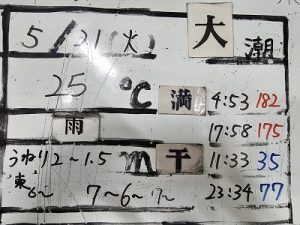 5/21(火) 大潮
25℃ 満 4:53 182
雨 17:58 175
うねり2~1.5m 干 11:33 35
東6~ 7~6~7~ 23:34 77